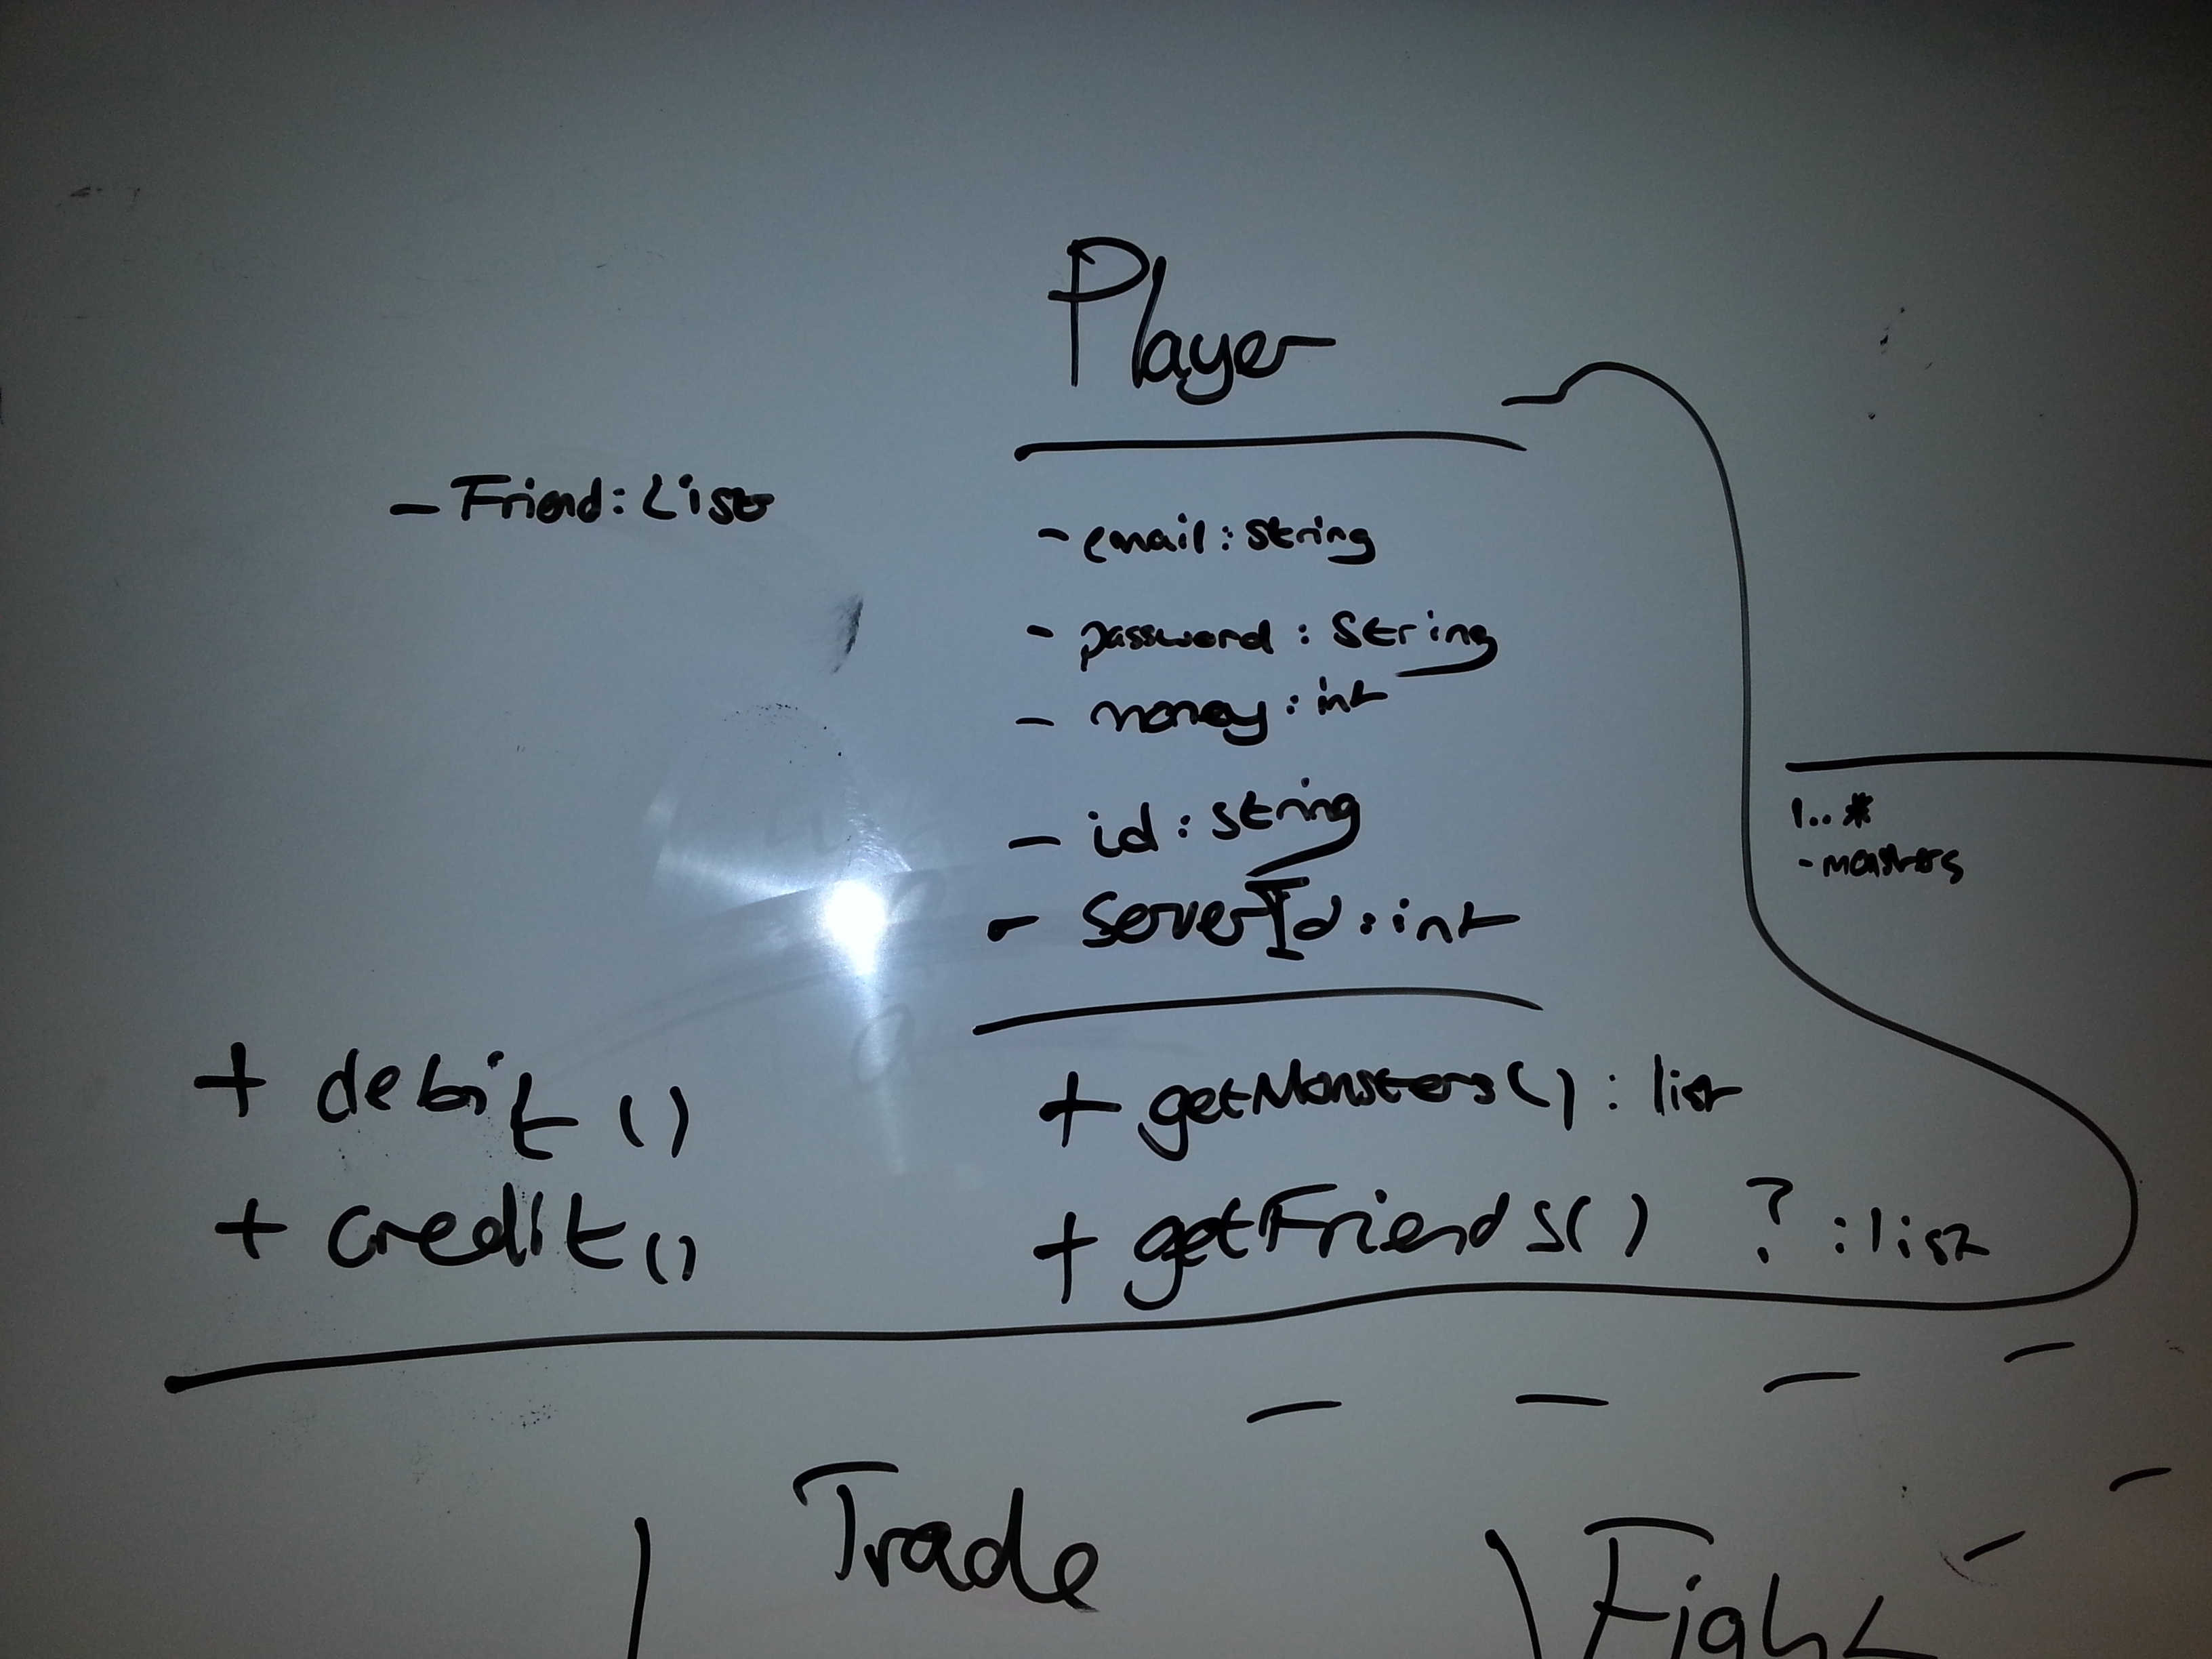 Player
- Friend: List
- email: String
- password: String
- money: int
- id: String
- ServerId: int
1..*
- monsters
+ debit()
+ getMonsters(): list
+ credit()
+ getFriends() ? : list
Trade
Fight